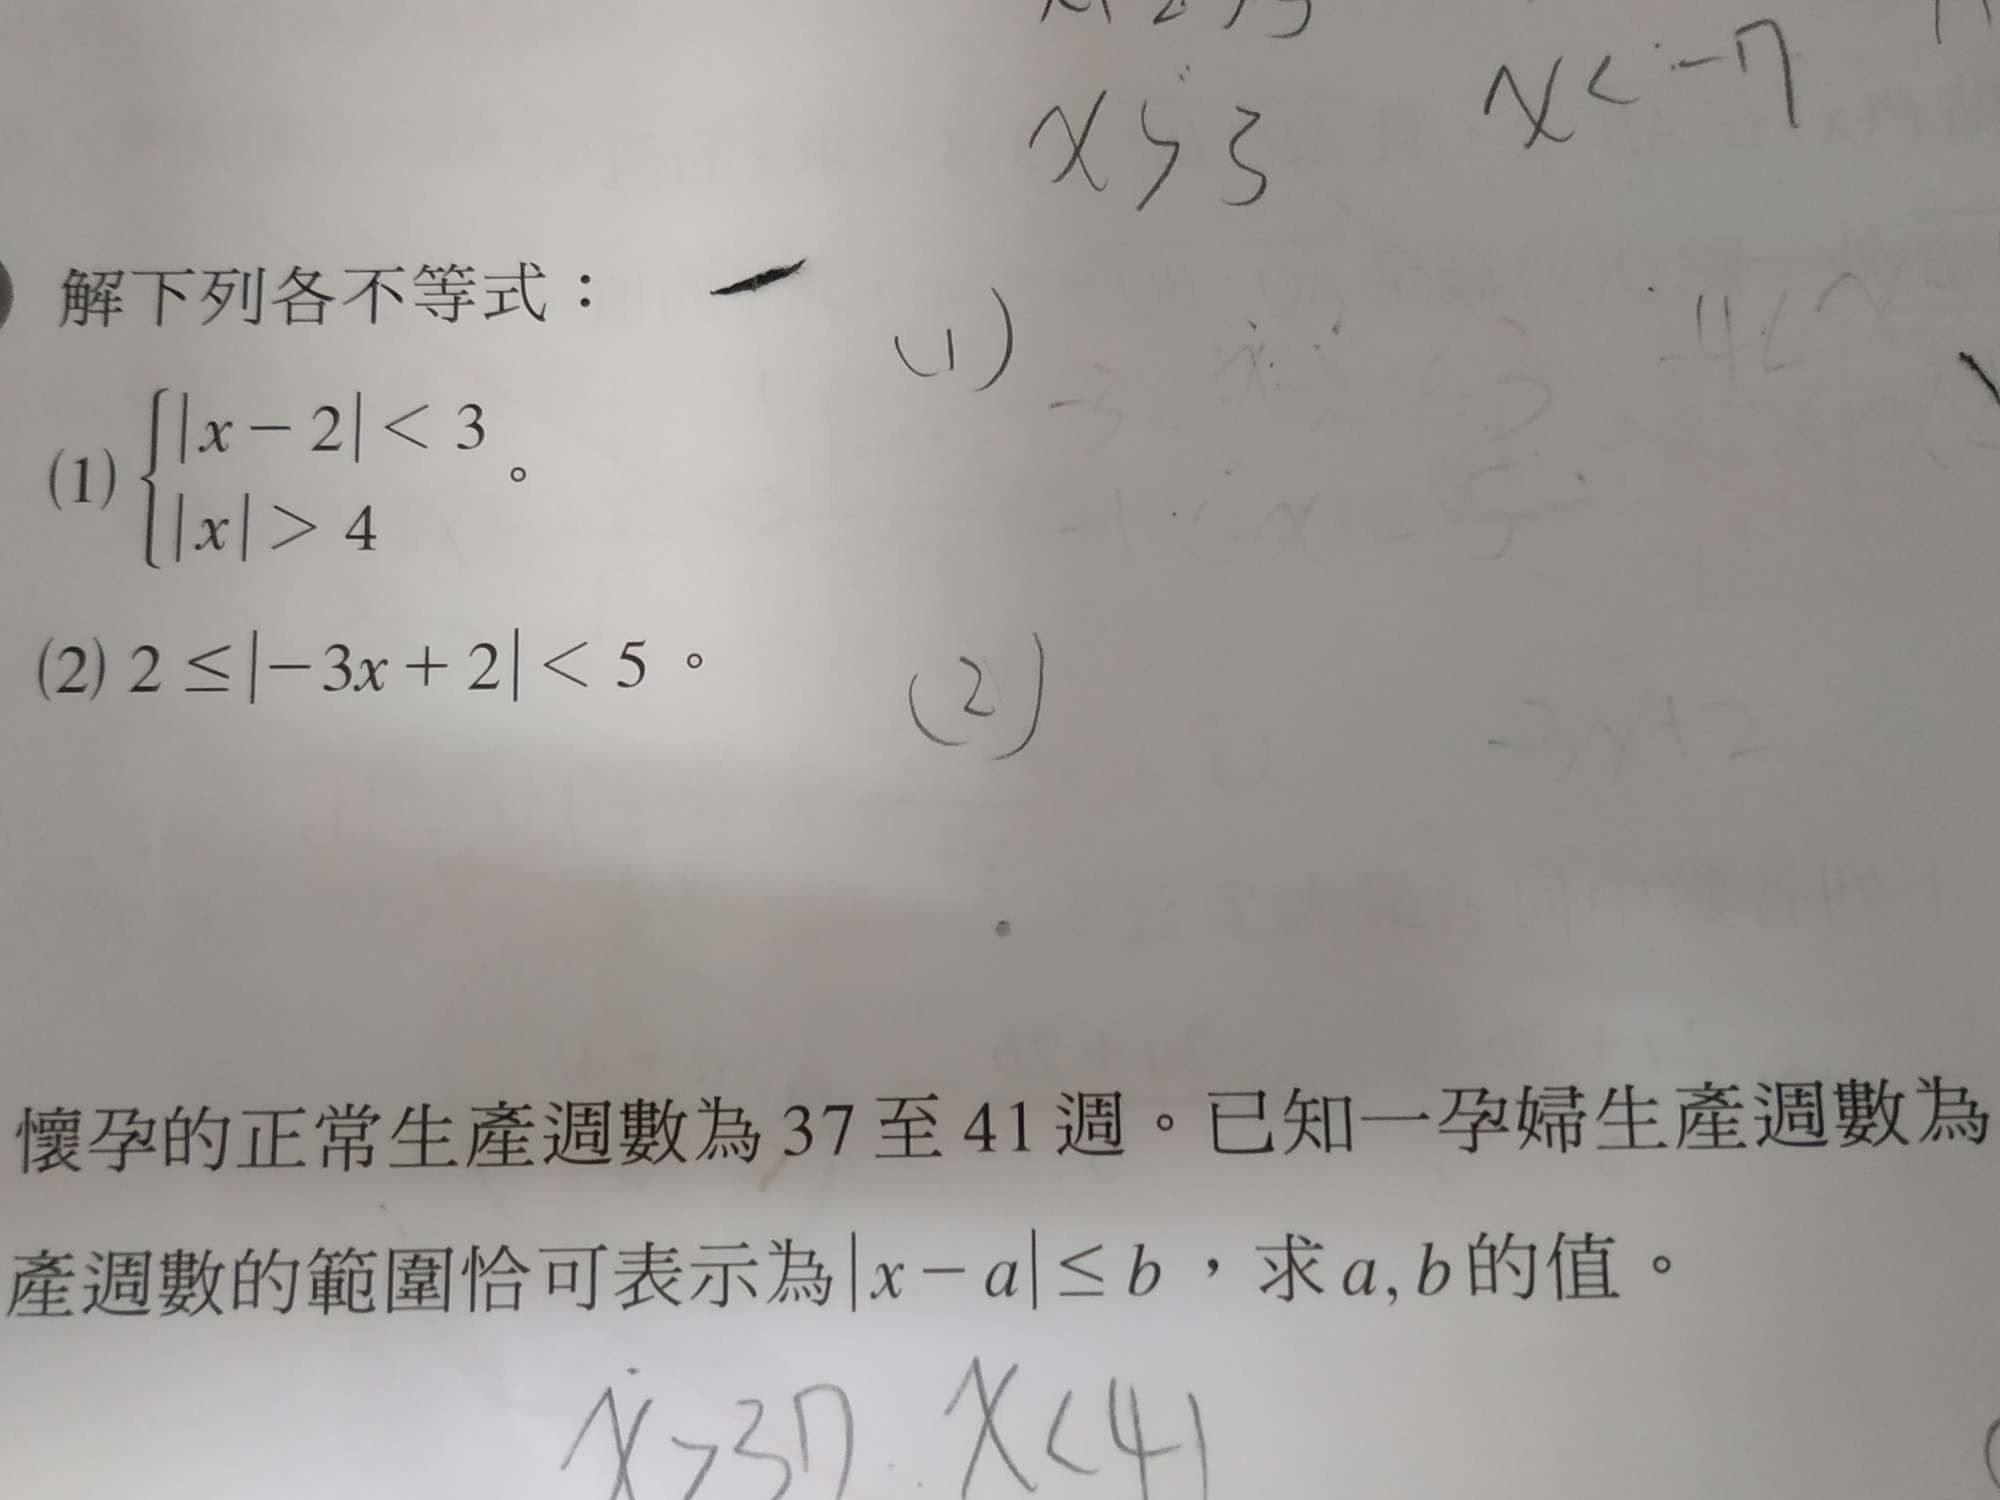 x > 3
x < -7
解下列各不等式：
(1)
(1) { |x - 2| < 3
|x| > 4 。
(2) 2 ≤ |-3x + 2| < 5 。
(2)
懷孕的正常生產週數為 37 至 41 週。已知一孕婦生產週數為
產週數的範圍恰可表示為 |x - a| ≤ b，求 a, b 的值。
x > 37 x < 41